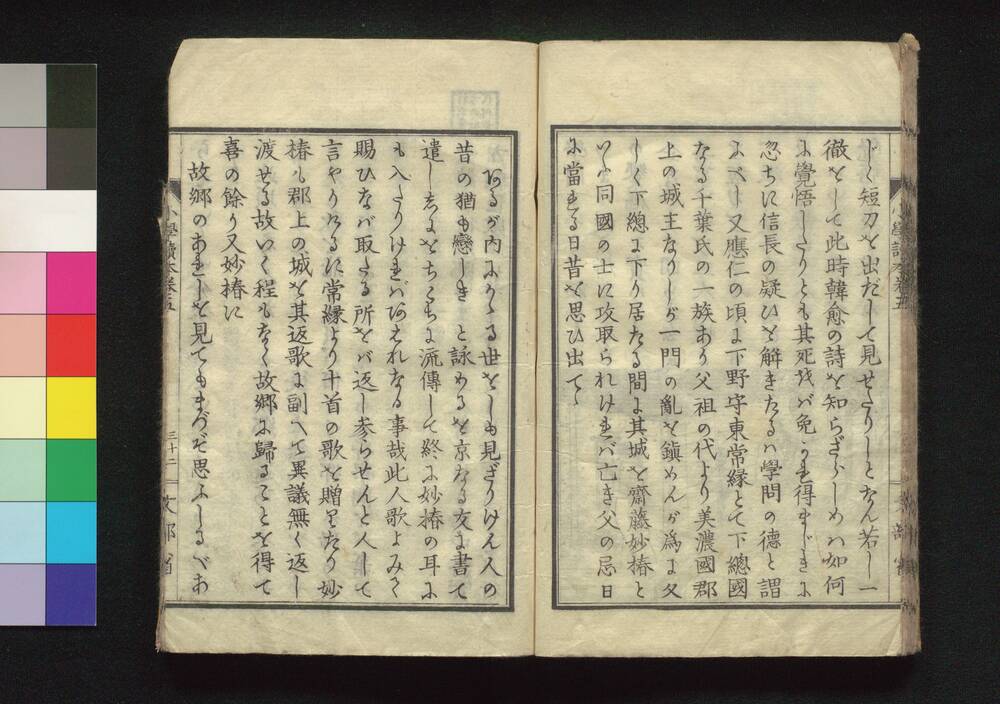 じく短刀を出だして見せたりしとなん若し一
徹をして此時韓愈の詩を知らざらしめハ如何
に覺悟したりとも其死をバ免かれ得まじきに
忽ちに信長の疑ひを解きたるハ學問の德と謂
ふべし又應仁の頃に下野守東常縁とて下總國
なる千葉氏の一族あり父祖の代より美濃國郡
上の城主なりしが一門の亂を鎭めんが爲に久
しく下總に下り居たる間に其城を齋藤妙椿と
いふ同國の士に攻取られけれバ亡き父の忌日
に當れる日昔を思ひ出てゝ
あるが内にかゝる世をしも見ざりけん人の
昔の猶も戀しき と詠めるを京なる友に書て
遣しゝをちこちに流傳して終に妙椿の耳に
も入たりけれバあはれなる事哉此人歌よみて
賜ひなバ取たる所をバ返し參らせんと人して
言やりけるに常縁より十首の歌を贈りたり妙
椿も郡上の城を其返歌に副へて異議無く返し
渡せる故いく程もなく故郷に歸ることを得て
喜の餘り又妙椿に
故郷のあれしを見てもまづぞ思ふしるべあ
小學讀本卷五
三十二
文部省